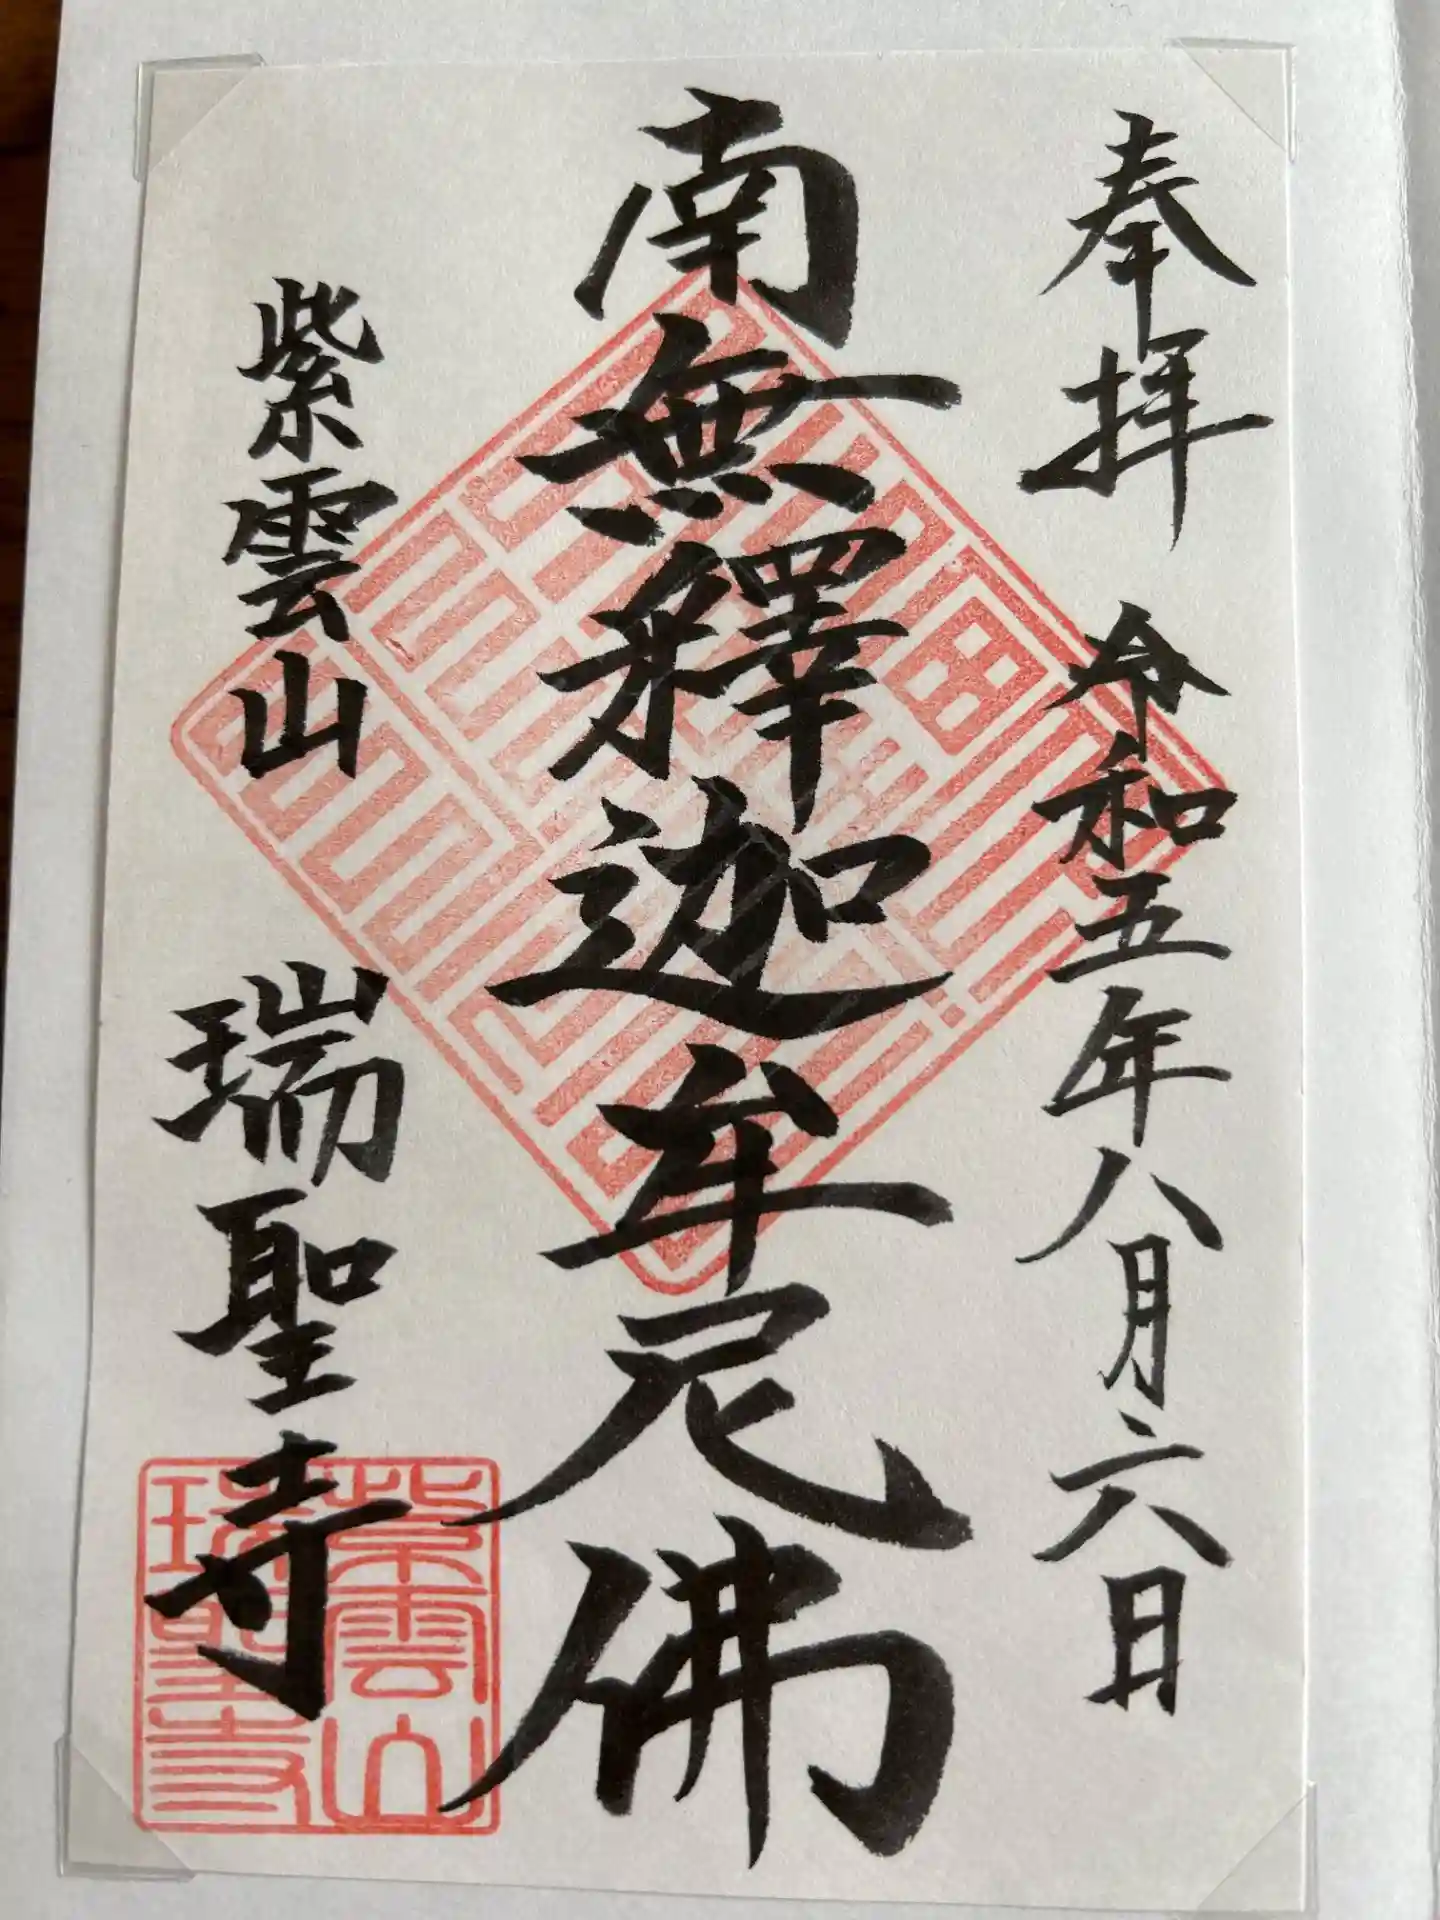 奉拝 令和五年八月六日
南無釋迦牟尼佛
紫雲山 瑞聖寺
紫雲山
瑞聖寺